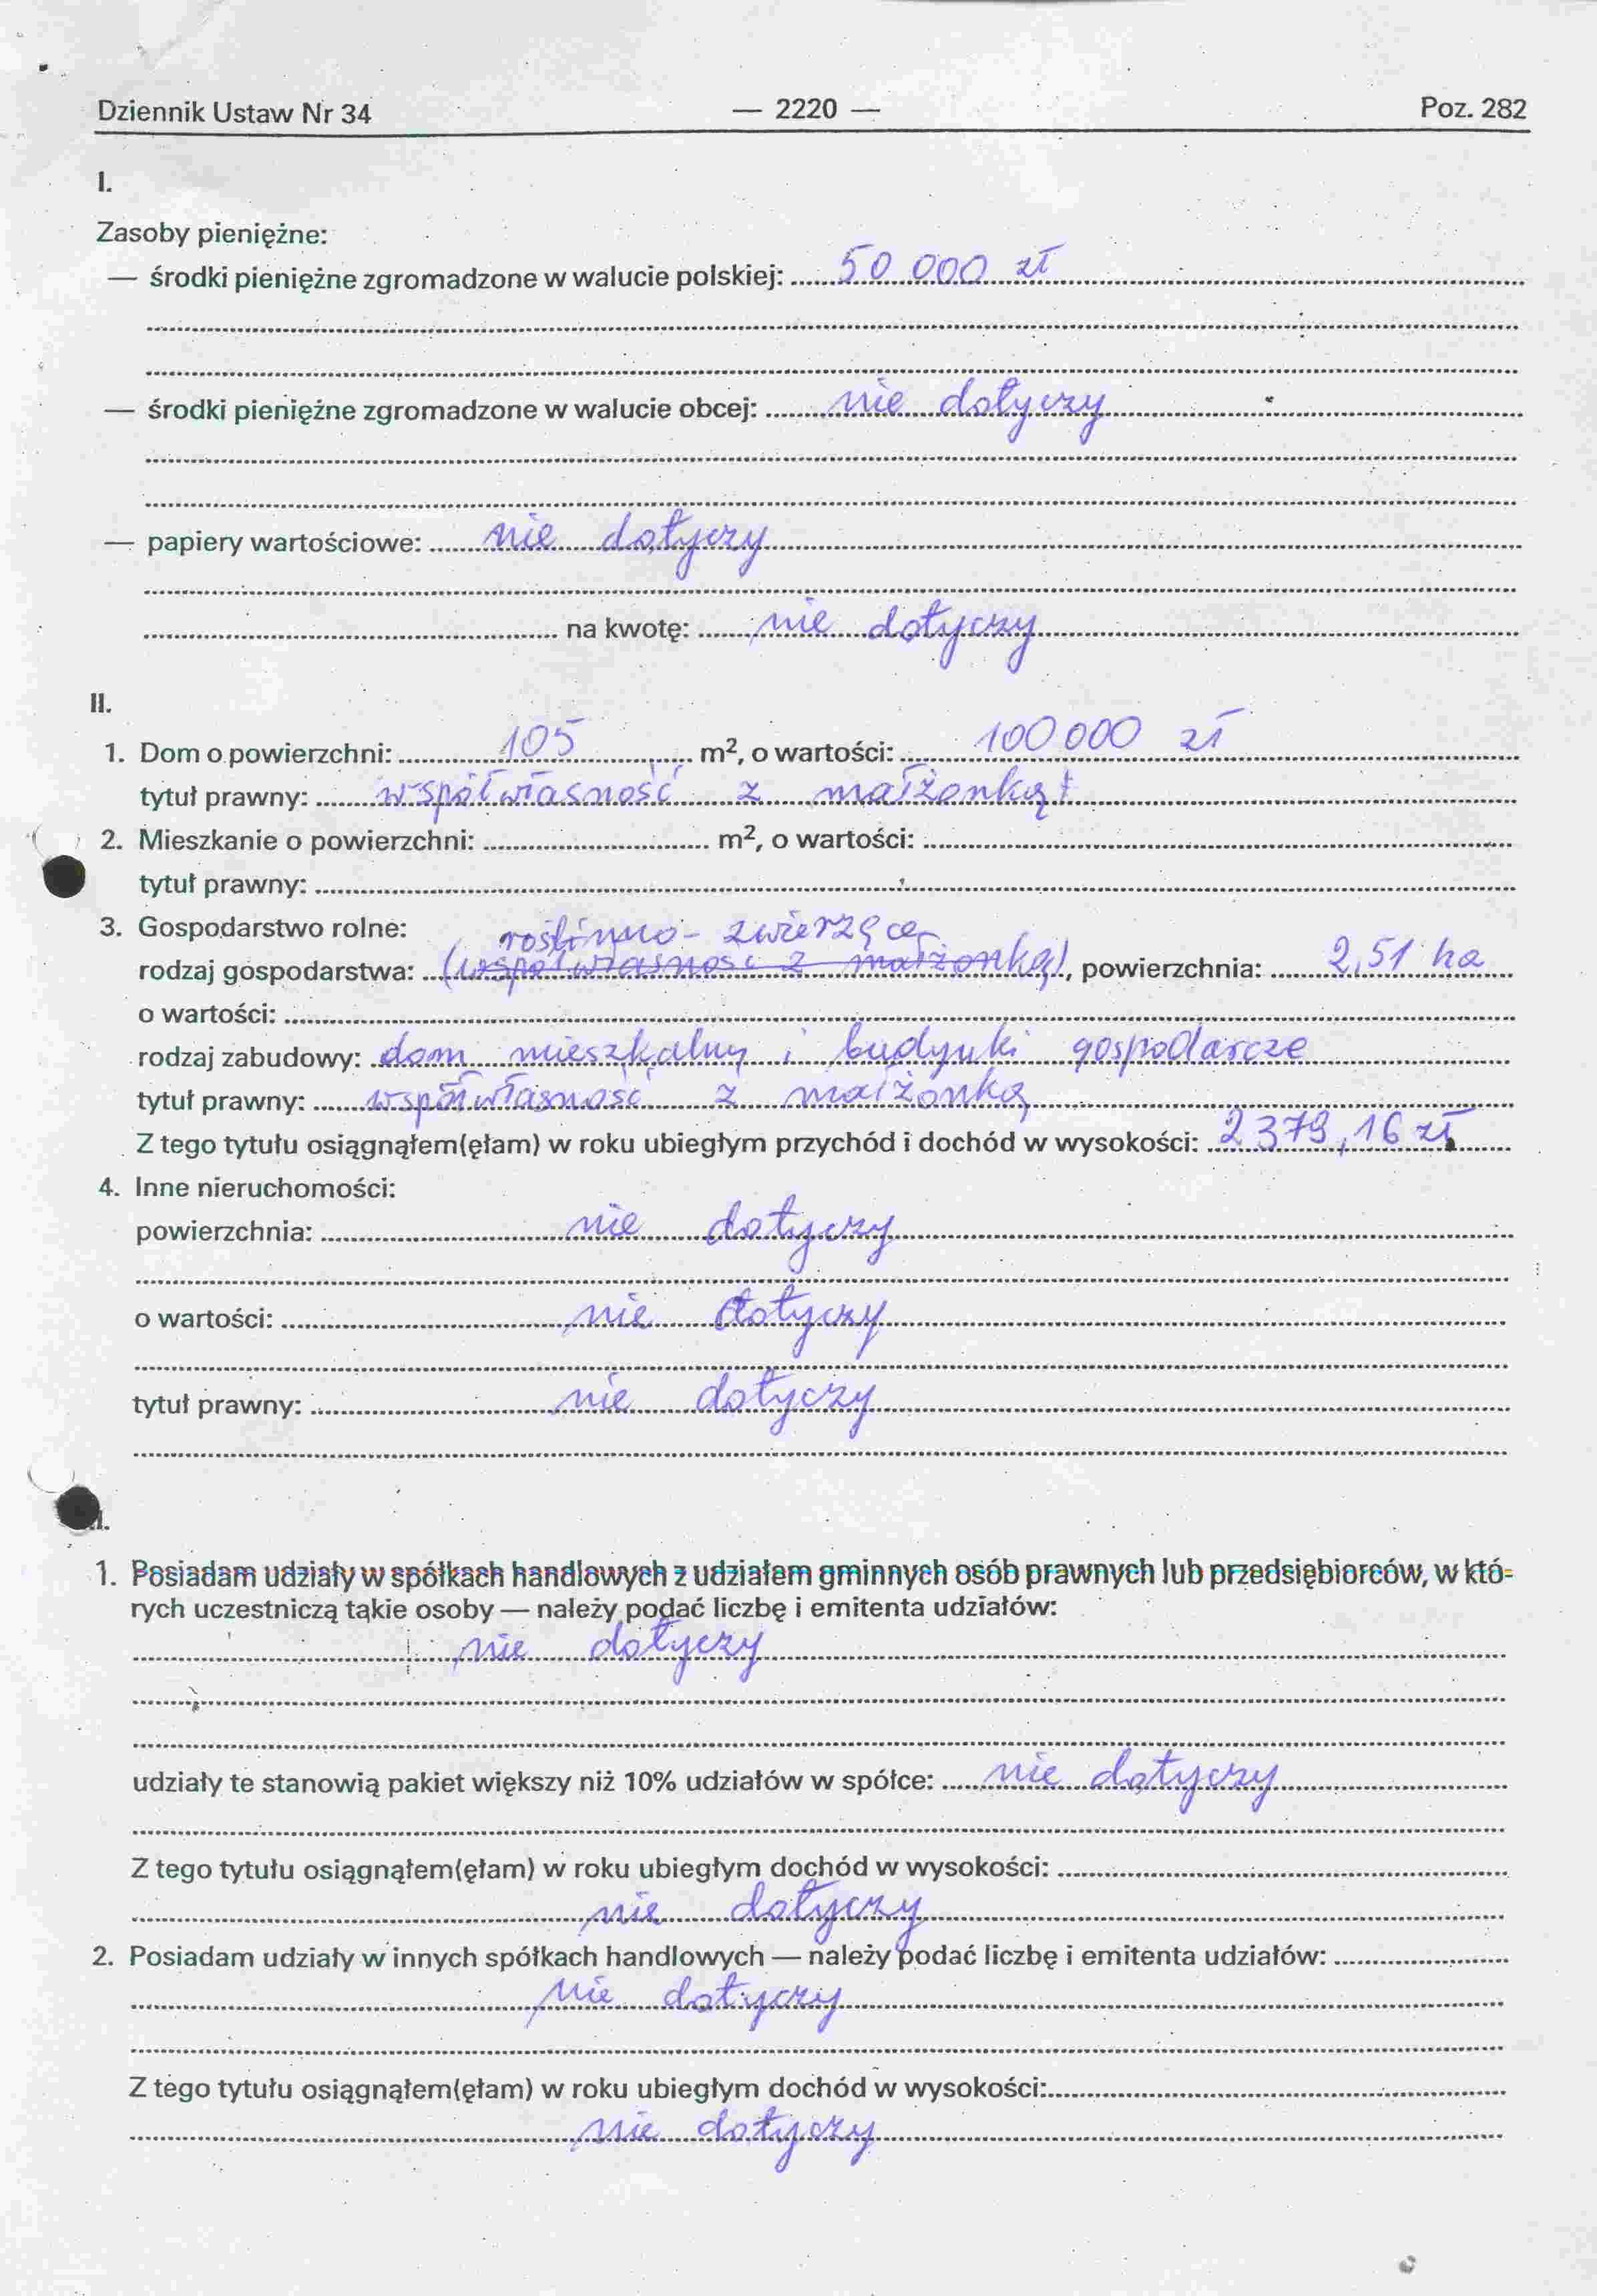 Dziennik Ustaw Nr 34 — 2220 — Poz. 282
I.
Zasoby pieniężne:
— środki pieniężne zgromadzone w walucie polskiej: 50 000 zł
— środki pieniężne zgromadzone w walucie obcej: nie dotyczy
— papiery wartościowe: nie dotyczy
na kwotę: nie dotyczy
II.
1. Dom o powierzchni: 105 m², o wartości: 100 000 zł
tytuł prawny: współwłasność z małżonką
2. Mieszkanie o powierzchni: m², o wartości:
tytuł prawny:
3. Gospodarstwo rolne: roślinno-zwierzęce
rodzaj gospodarstwa: (współwłasność z małżonką), powierzchnia: 2,51 ha
o wartości:
rodzaj zabudowy: dom mieszkalny i budynki gospodarcze
tytuł prawny: współwłasność z małżonką
Z tego tytułu osiągnąłem(ęłam) w roku ubiegłym przychód i dochód w wysokości: 2 379,16 zł
4. Inne nieruchomości:
powierzchnia: nie dotyczy
o wartości: nie dotyczy
tytuł prawny: nie dotyczy
1. Posiadam udziały w spółkach handlowych z udziałem gminnych osób prawnych lub przedsiębiorców, w któ-
rych uczestniczą takie osoby — należy podać liczbę i emitenta udziałów:
nie dotyczy
udziały te stanowią pakiet większy niż 10% udziałów w spółce: nie dotyczy
Z tego tytułu osiągnąłem(ęłam) w roku ubiegłym dochód w wysokości:
nie dotyczy
2. Posiadam udziały w innych spółkach handlowych — należy podać liczbę i emitenta udziałów:
nie dotyczy
Z tego tytułu osiągnąłem(ęłam) w roku ubiegłym dochód w wysokości:
nie dotyczy